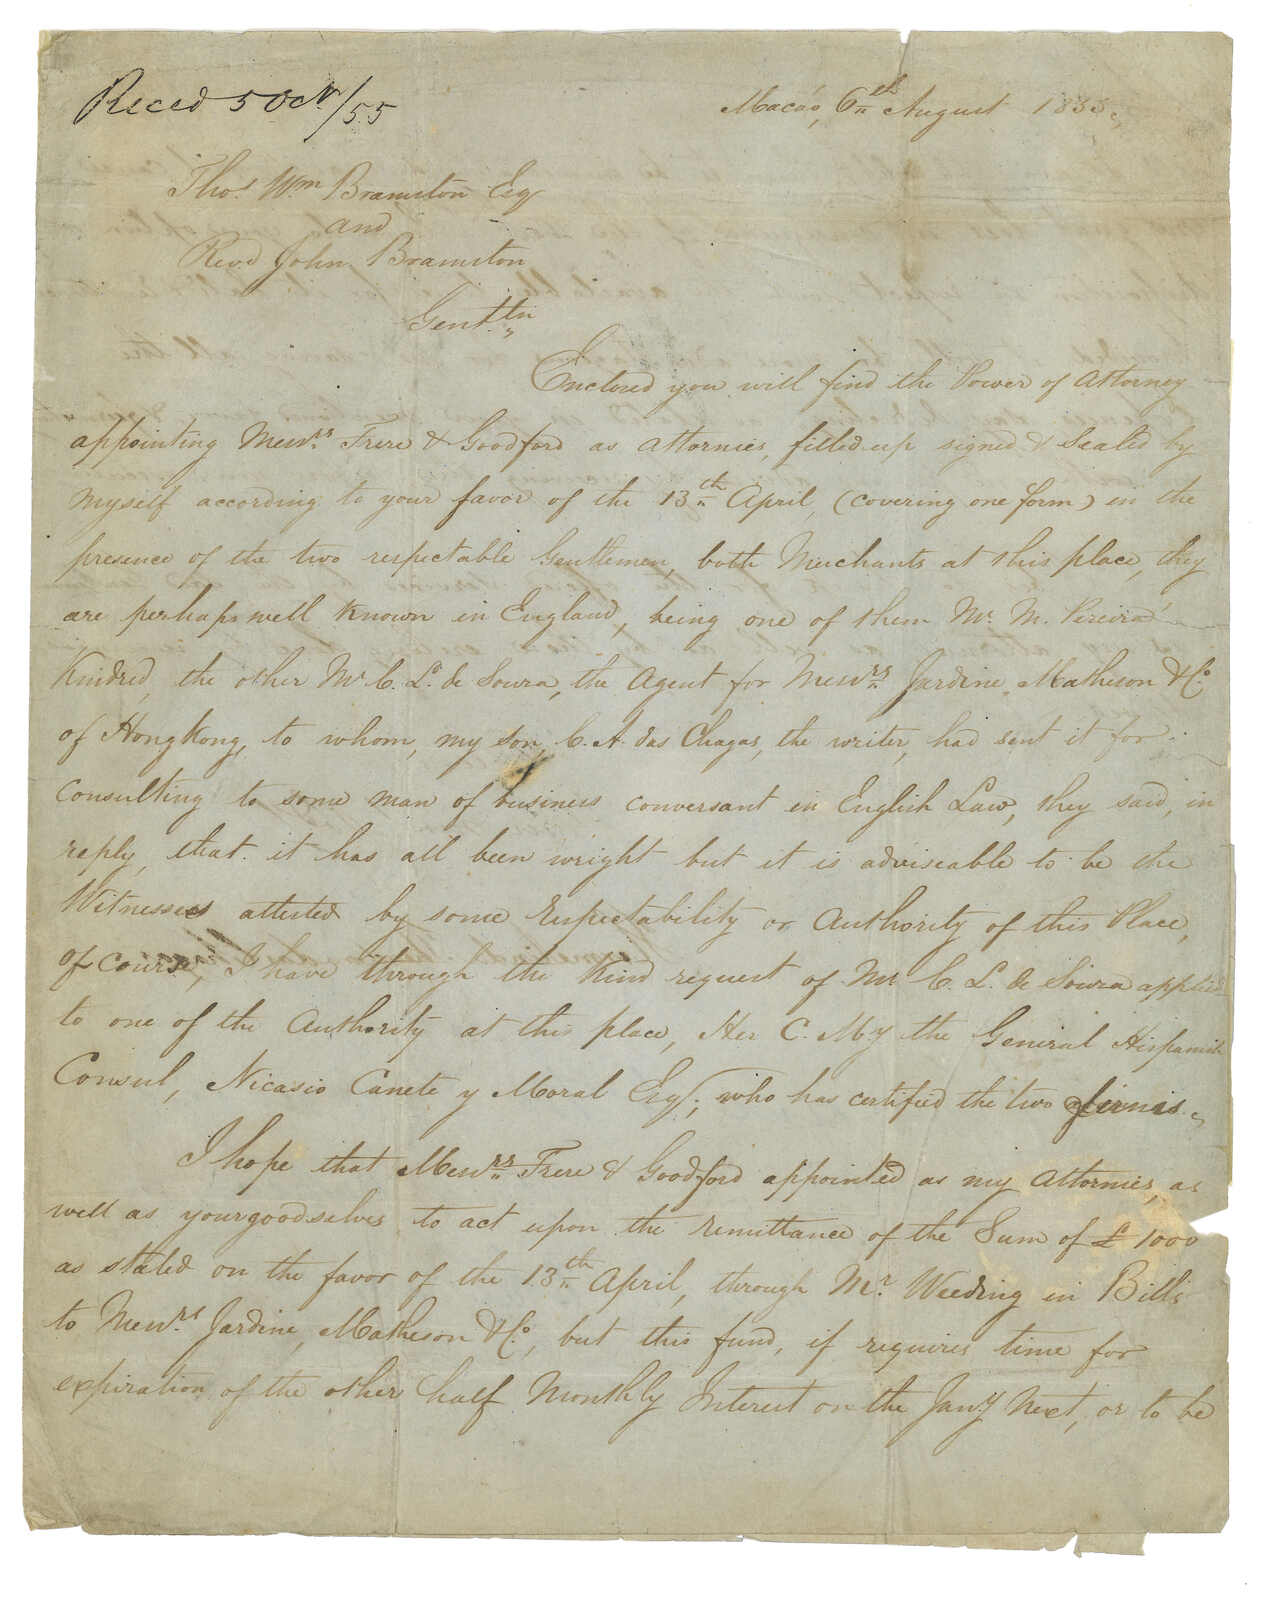 Reced 5 Octr/55
Macáo, 6th August 1855,,
Thos Wm Bramston Esq
and
Revd John Bramston
Gentln,,
Enclosed you will find the Power of Attorney
appointing Messrs Frere & Goodford as attornies, filled up signed & Sealed by
myself according to your favor of the 13th April, (covering one form) in the
presence of the two respectable Gentlemen, both Merchants at this place, they
are perhaps well known in England, being one of them Mr. M. Pereira
Kindred, the other Mr. C. Lo. de Souza, the Agent for Messrs Jardine Matheson & Co.
of HongKong, to whom, my son, C. A. das Chagas, the writer, had sent it for
consulting to some man of business conversant in English Law, they said, in
reply, that it has all been wright but it is adviseable to be the
Witnesses attested by some respectability or Authority of this Place,
of course, I have through the Kind request of Mr C. L. de Souza applied
to one of the Authority at this place, Her C. M.y the General Hispanish
Consul, Nicasio Canete y Moral Esq; who has certified the two firmis.,
I hope that Messrs Frere & Goodford appointed as my attornies, as
well as yourgoodselves to act upon the remittance of the Sum of £ 1000
as stated on the favor of the 13th April, through Mr. Weeding in Bills
to Messrs Jardine, Matheson & Co., but this fund, if requires time for
expiration of the other half Monthly Interest on the Jany Next, or to be